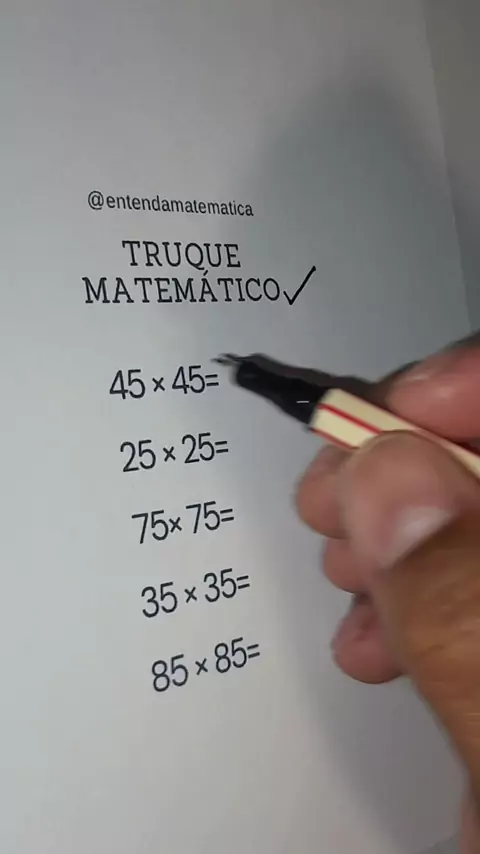 @entendamatematica
TRUQUE
MATEMÁTICO✓
45 × 45=
25 × 25=
75× 75=
35 × 35=
85 × 85=